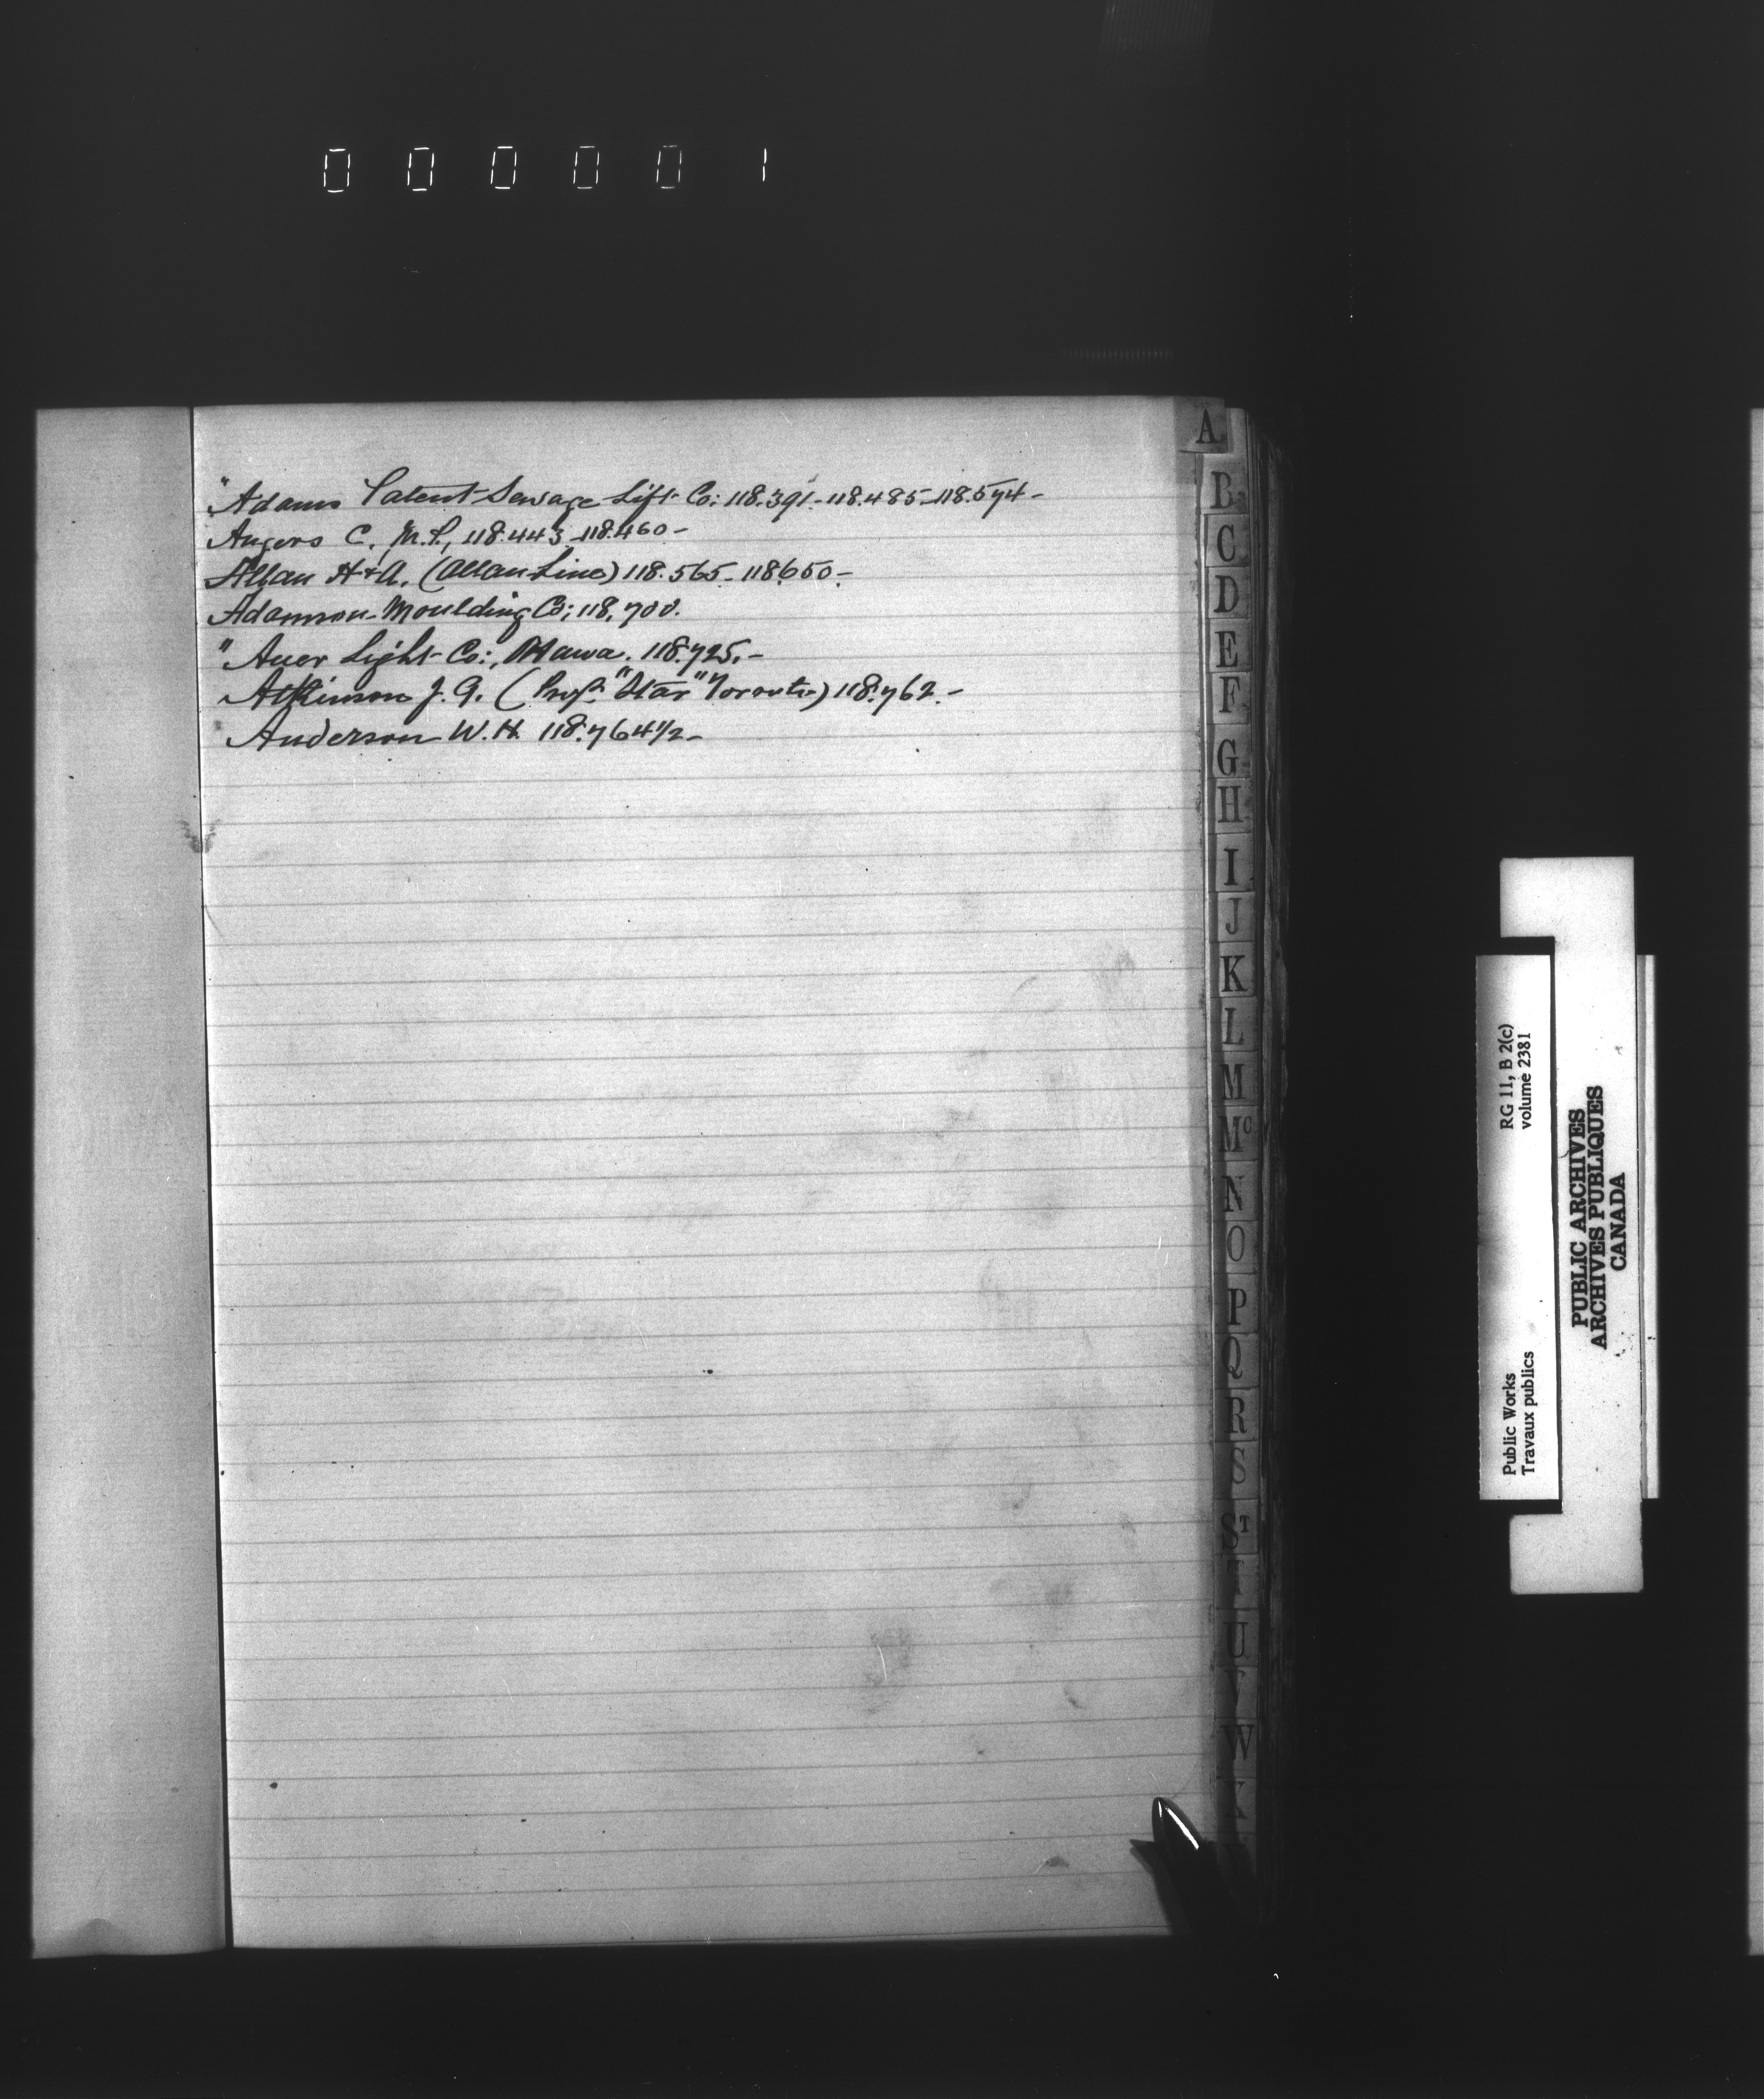 000001
A
" Adams Patent Sewage Lift Co: 118.391-118.485-118.574-
Angers C. M.P., 118.443-118.460-
Allan H & A. (Allan Line) 118.565-118650-
Adamson Moulding Co; 118,700.
" Auer Light Co:, Ottawa. 118.725.-
Atkinson J. A. ( "Star" Toronto) 118.762.-
Anderson W. H. 118.764½-
B
C
D
E
F
G
H
I
J
K
L
M
Mc
N
O
P
Q
R
S
ST
T
U
V
W
Public Works
Travaux publics
RG 11, B 2(c)
volume 2381
PUBLIC ARCHIVES
ARCHIVES PUBLIQUES
CANADA